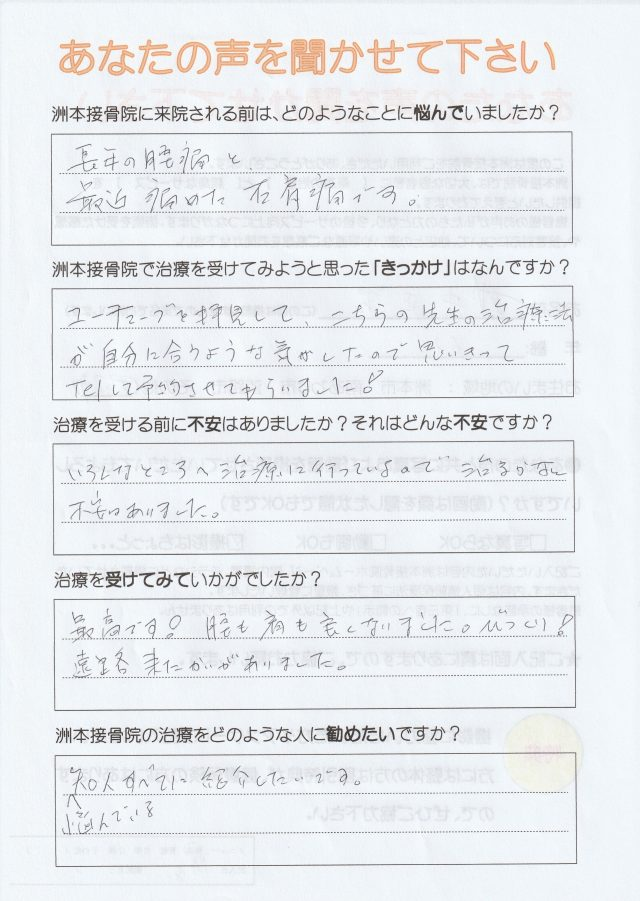 あなたの声を聞かせて下さい
洲本接骨院に来院される前は、どのようなことに悩んでいましたか？
長年の腰痛と、
最近痛めた右肩痛です。
洲本接骨院で治療を受けてみようと思った「きっかけ」はなんですか？
ユーチューブを拝見して、こちらの先生の治療法
が自分に合うような気がしたので思いきって
Telして予約させてもらいました！
治療を受ける前に不安はありましたか？それはどんな不安ですか？
いろんなところへ治療に行っているので治るかなと
不安はありました。
治療を受けてみていかがでしたか？
最高です！腰も肩も良くなりました。びっくり！
遠路来たかいがありました。
洲本接骨院の治療をどのような人に勧めたいですか？
知人すべてに紹介したいです。
悩んでいる